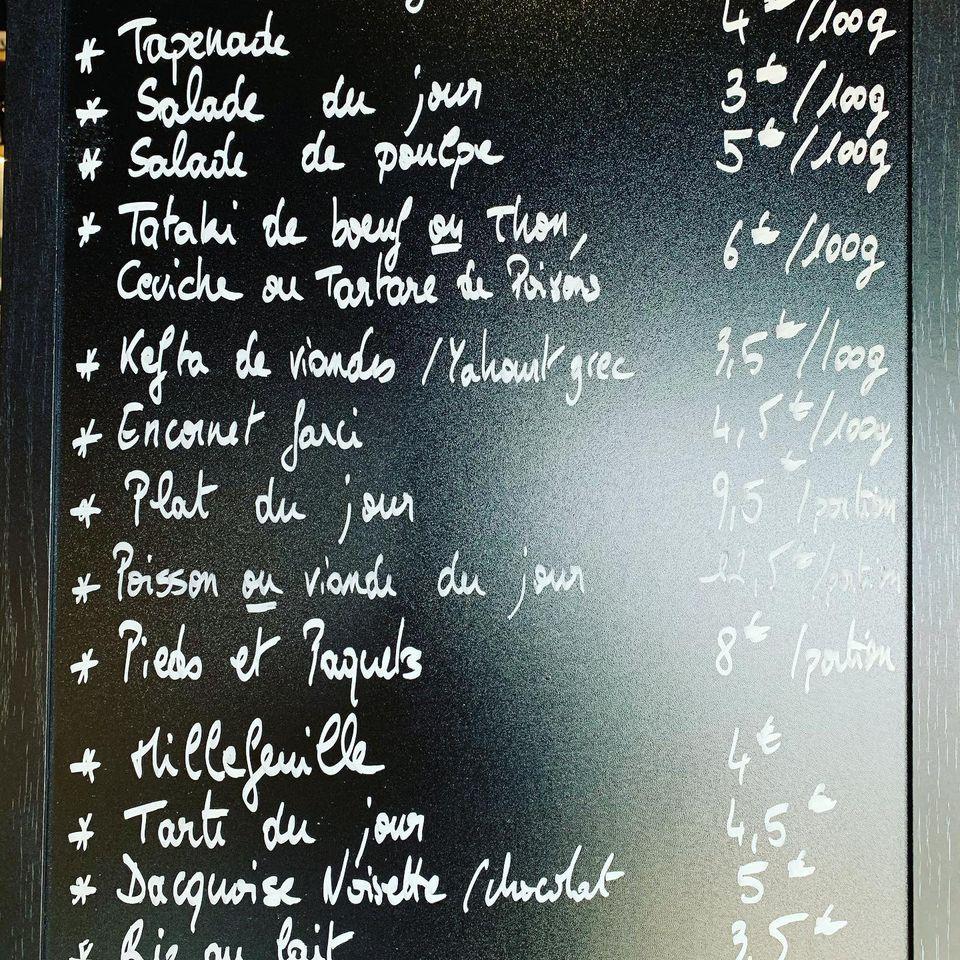 * Tapenade 4€/100g
* Salade du jour 3€/100g
* Salade de poulpe 5€/100g
* Tataki de bœuf ou Thon,
Ceviche ou Tartare de Poissons 6€/100g
* Kefta de viandes /Yahourt grec 3,5€/100g
* Encornet farci 4,5€/100g
* Plat du jour 9,5€/portion
* Poisson ou viande du jour /portion
* Pieds et Paquets 8€/portion
* Millefeuille 4€
* Tarte du jour 4,5€
* Dacquoise Noisette /chocolat 5€
* Riz au lait 3,5€